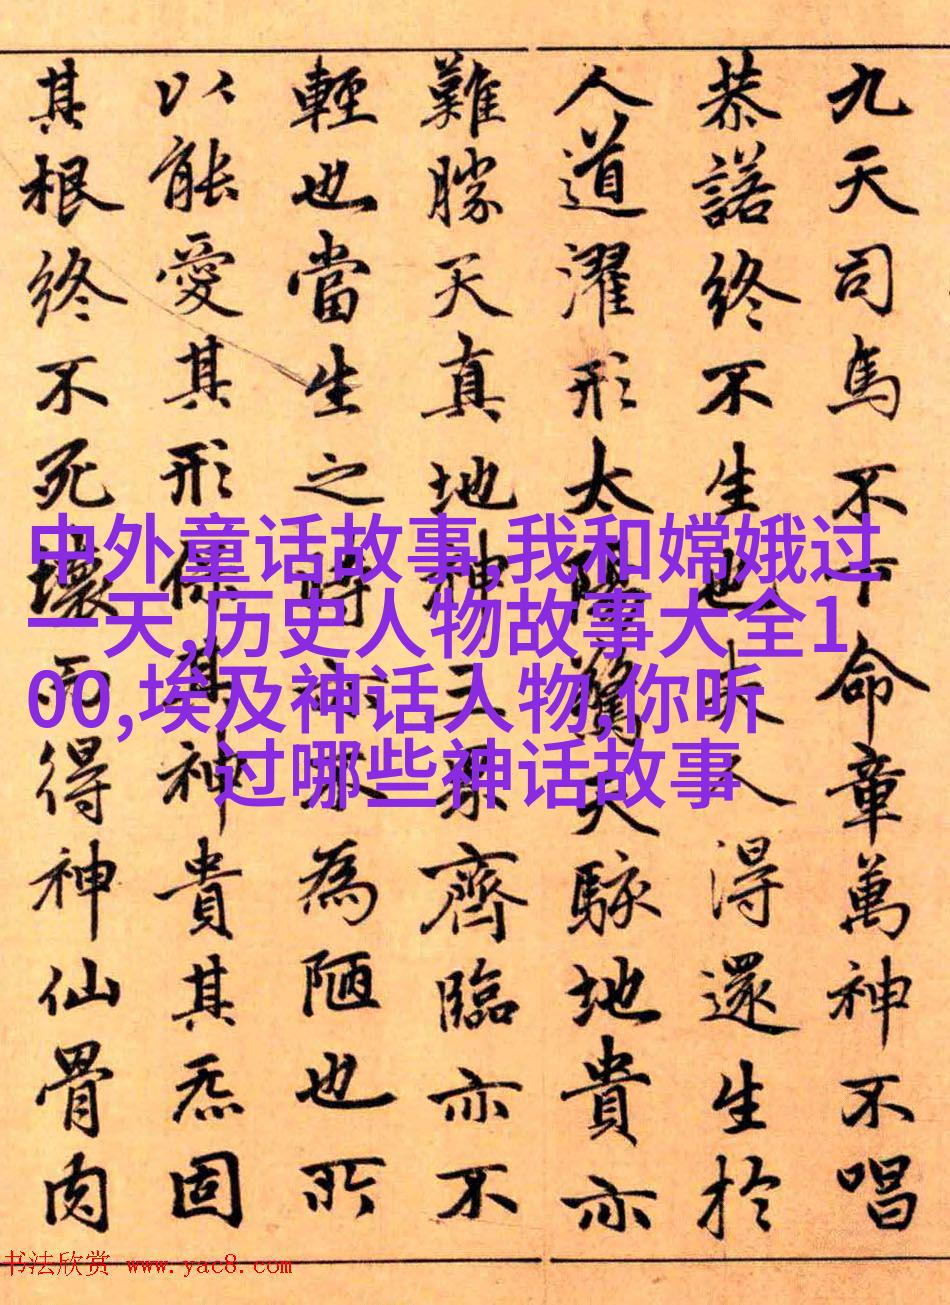 九天司馬不下命章萬神不唱
恭諾終不生也夫人得還生於
人道濯形太陽驚天駭地貴亦
難勝天真地神三界齊臨亦不
輕也當生之時亦不為陋也所
以能愛其形保其神貴其炁固
其根終不死壞而得神仙骨肉
中外童话故事,我和嫦娥过
一天,历史人物故事大全1
00,埃及神话人物,你听
过哪些神话故事
书法欣赏 www.yac8.com